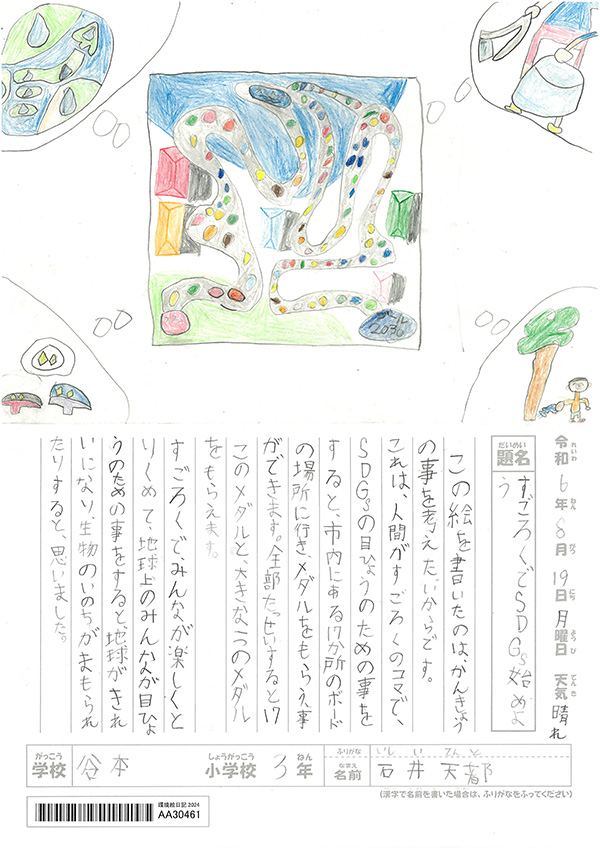 ゴール
2030
令和6年8月19日月曜日 天気 晴れ
れいわ ねん がつ にち ようび てんき
だいめい
題名
すごろくでSDGs始めよ
う
この絵を書いたのは、かんきょう
の事を考えたいからです。
これは、人間がすごろくのコマで、
SDGsの目ひょうのための事を
すると、市内にある17か所のボード
の場所に行き、メダルをもらう事
ができます。全部たっせいすると17
このメダルと、大きな一つのメダル
をもらえます。
すごろくで、みんなが楽しくと
りくめて、地球上のみんなが目ひょ
うのための事をすると、地球がきれ
いになり、生物のいのちがまもられ
たりすると、思いました。
がっこう
学校
谷本
しょうがっこう
小学校
3年
ねん
ふりがな
いしい てんと
なまえ
名前
石井天都
(漢字で名前を書いた場合は、ふりがなをふってください)
環境絵日記2024
AA30461